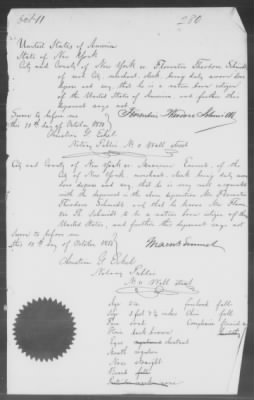 Oct 11
280
United States of America
State of New York
City and County of New York ss Florentin Theodore Schmidt
of said City, merchant clerk being duly sworn does
depose and say, that he is a native born citizen
of the United States of America, and further this
deponent says not
Sworn to before me
this 10th day of October 1870
Florentin Theodore Schmidt
Notary Public No 2 Wall street
City and County of New York ss of the
City of New York merchant clerk being duly sworn
does depose and say, that he is very well acquainted
with the deponent in the above deposition Mr Florentin
Theodore Schmidt and that he knows Mr Floren
tin Th. Schmidt to be a native born citizen of the
United States, and further this deponent says not
Sworn to before me
this 10th day of October 1870
Notary Public
No 2 Wall street
Age
forehead full
Chin full
Face oval
Complexion
Hair dark brown
Eyes
Mouth regular
Nose straight
Beard